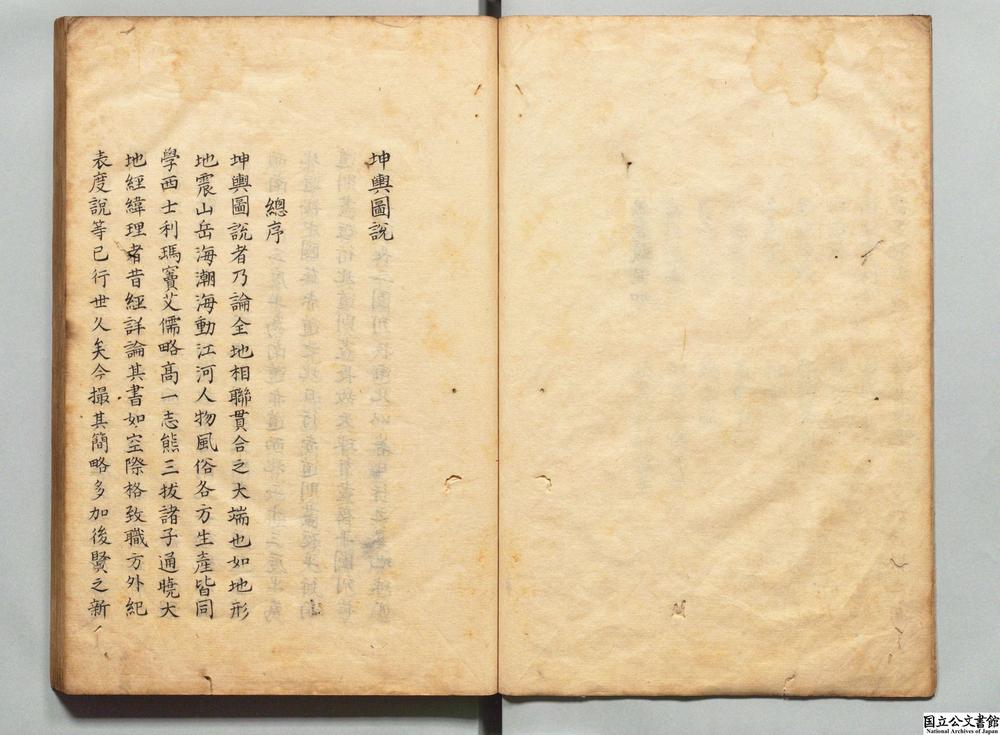 坤輿圖說
總序
坤輿圖說者乃論全地相聯貫合之大端也如地形
地震山岳海潮海動江河人物風俗各方生產皆同
學西士利瑪竇艾儒略高一志熊三拔諸子通曉大
地經緯理者昔經詳論其書如空際格致職方外紀
表度說等已行世久矣今撮其簡略多加後賢之新
国立公文書館
National Archives of Japan